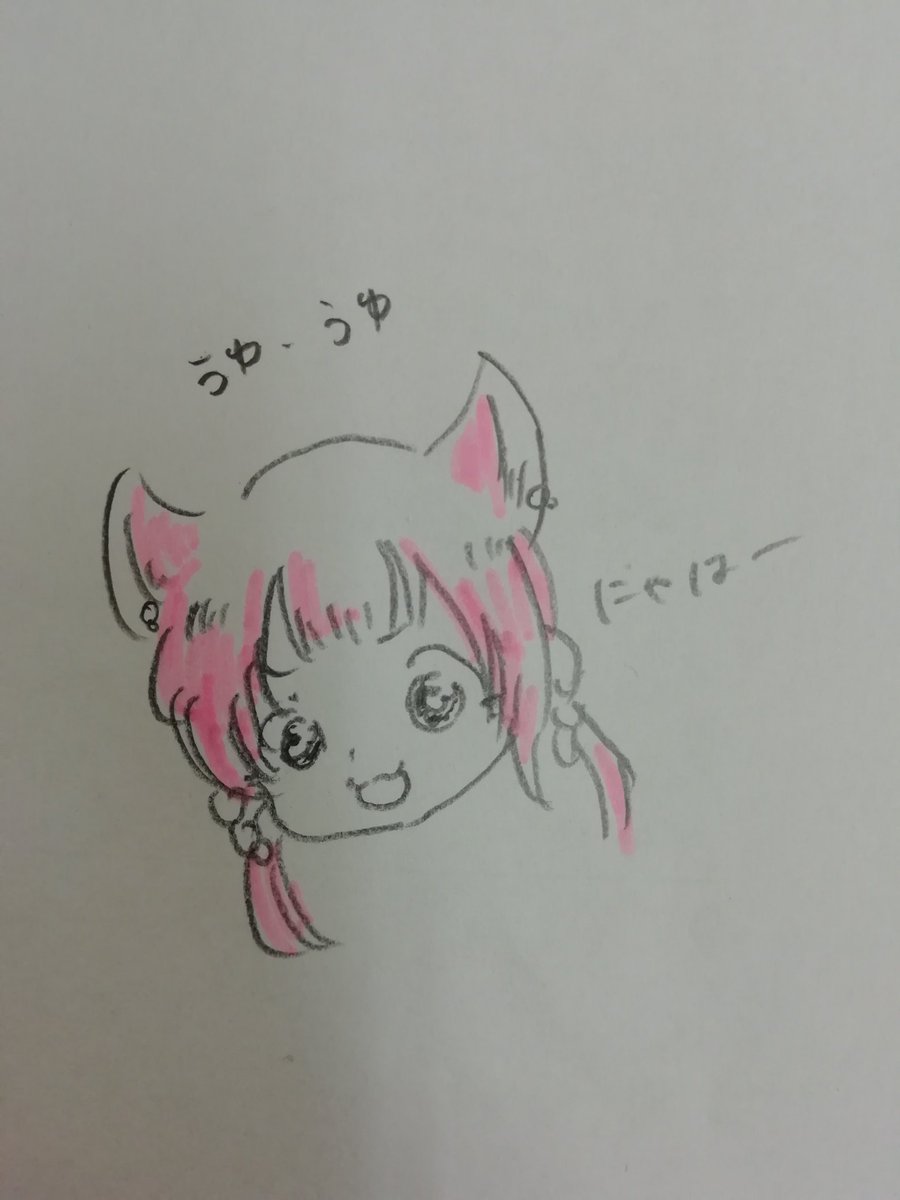 うゅ-うゅ
にゃはー